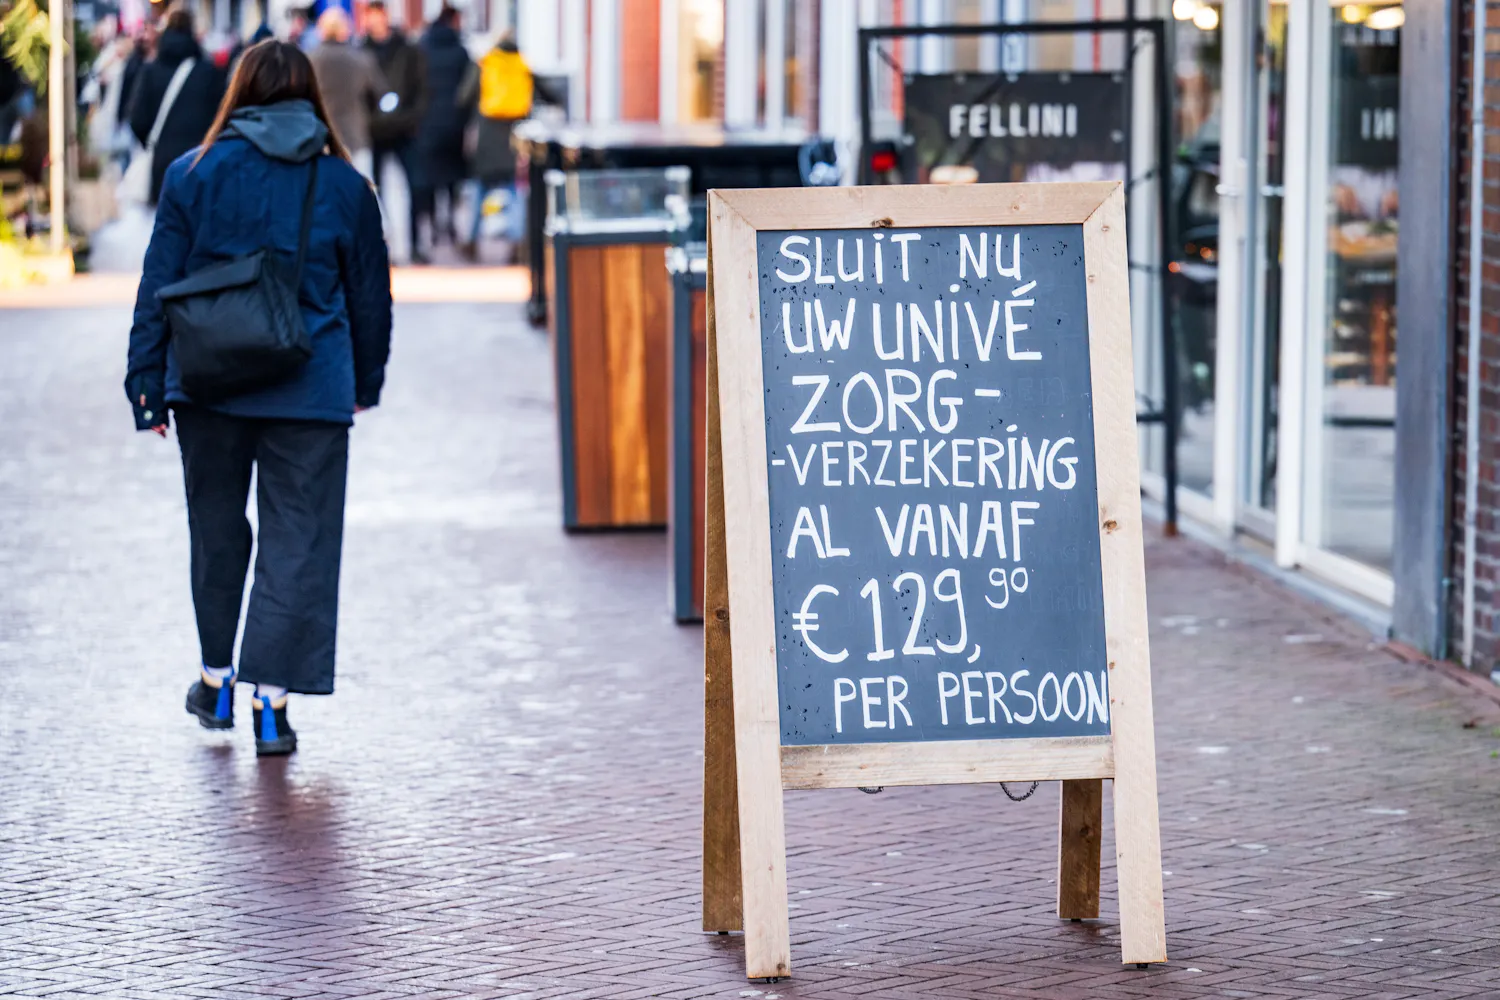 FELLINI
SLUIT NU
UW UNIVÉ
ZORG-
-VERZEKERING
AL VANAF
€129,90
PER PERSOON